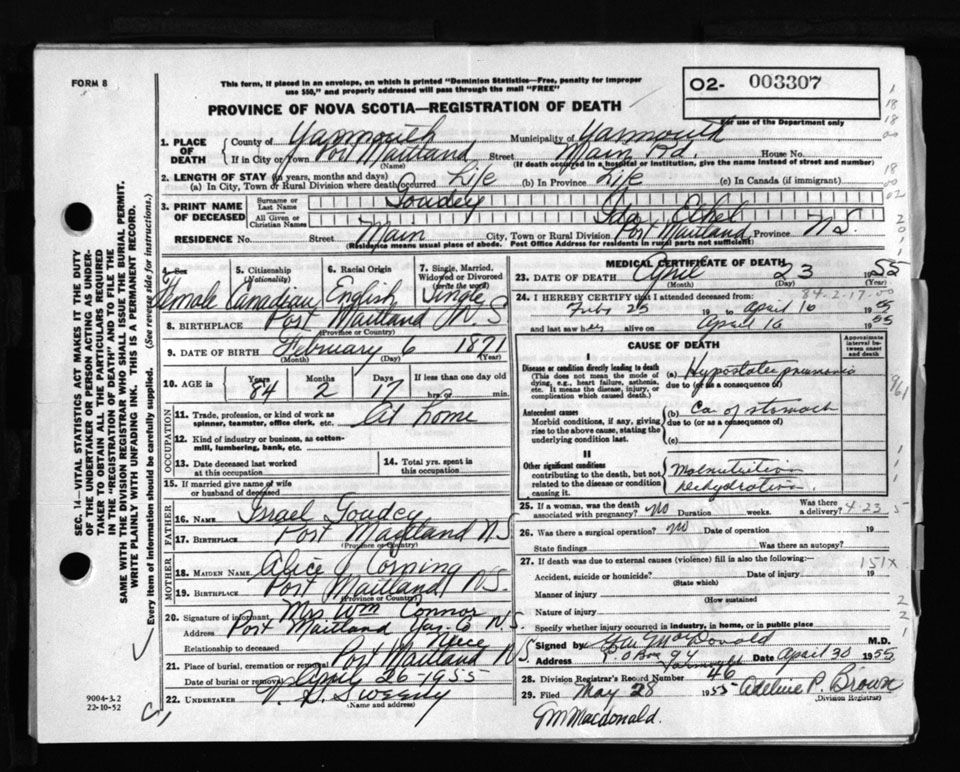 FORM 8
This form, if placed in an envelope, on which is printed "Dominion Statistics—Free, penalty for improper
use $50," and properly addressed will pass through the mail "FREE"
O2- 003307
For use of the Department only
PROVINCE OF NOVA SCOTIA—REGISTRATION OF DEATH
1. PLACE OF DEATH
County of Yarmouth Municipality of Yarmouth
If in City or Town Port Maitland Street Main Rd. House No.
(Name) (If death occurred in a hospital or institution, give the name instead of street and number)
2. LENGTH OF STAY (in years, months and days)
(a) In City, Town or Rural Division where death occurred Life (b) In Province Life (c) In Canada (if immigrant)
3. PRINT NAME OF DECEASED
Surname or Last Name Goudey
All Given or Christian Names Ida Ethel
RESIDENCE No. Street Main City, Town or Rural Division Port Maitland Province N.S.
(Residence means usual place of abode. Post Office Address for residents in rural parts not sufficient)
4. Sex Female
5. Citizenship (Nationality) Canadian
6. Racial Origin English
7. Single, Married, Widowed or Divorced (write the word) Single
8. BIRTHPLACE Port Maitland N.S
(Province or Country)
9. DATE OF BIRTH February 6 1871
(Month) (Day) (Year)
10. AGE in Years Months Days If less than one day old
84 2 17 hrs. or min.
OCCUPATION
11. Trade, profession, or kind of work as
spinner, teamster, office clerk, etc. At home
12. Kind of industry or business, as cotton-
mill, lumbering, bank, etc.
13. Date deceased last worked
at this occupation
14. Total yrs. spent in
this occupation
15. If married give name of wife
or husband of deceased
FATHER
16. NAME Israel Goudey
17. BIRTHPLACE Port Maitland N.S
(Province or Country)
MOTHER
18. MAIDEN NAME Alice J Corning
19. BIRTHPLACE Port Maitland N.S.
(Province or Country)
20. Signature of informant Mrs Wm Connor
Address Port Maitland Yar. Co N.S.
Relationship to deceased Niece
21. Place of burial, cremation or removal Port Maitland N.S
Date of burial or removal April 26-1955
22. UNDERTAKER V. S. Sweeny
(Name and address)
MEDICAL CERTIFICATE OF DEATH
23. DATE OF DEATH April 23 1955
(Month) (Day)
84-2-17-00
24. I HEREBY CERTIFY that I attended deceased from:
Feb. 25 19 to April 16 1955
and last saw her alive on April 16 1955
CAUSE OF DEATH
Approximate interval between onset and death
I
Disease or condition directly leading to death
(This does not mean the mode of dying, e.g., heart failure, asthenia, etc. It means the disease, injury, or complication which caused death.)
(a) Hypostatic pneumonia
due to (or as a consequence of)
Antecedent causes
Morbid conditions, if any, giving rise to the above cause, stating the underlying condition last.
(b) Ca of stomach
due to (or as a consequence of)
(c)
II
Other significant conditions
contributing to the death, but not related to the disease or condition causing it.
Malnutrition
Dehydration.
25. If a woman, was the death
associated with pregnancy? No Duration weeks. Was there a delivery? 4-23
26. Was there a surgical operation? No Date of operation 19
State findings Was there an autopsy?
27. If death was due to external causes (violence) fill in also the following:—
151X
Accident, suicide or homicide? Date of injury 19
(State which)
Manner of injury
(How sustained
Nature of injury
Specify whether injury occurred in industry, in home, or in public place
Signed by MacDonald M.D.
Address P.O Box 94 Yarmouth Date April 30 1955
28. Division Registrar's Record Number 46
29. Filed May 28 1955 Adeline P. Brown
(Division Registrar)
GM Macdonald.
SEC. 14—VITAL STATISTICS ACT MAKES IT THE DUTY
OF THE UNDERTAKER OR PERSON ACTING AS UNDER-
TAKER TO OBTAIN ALL THE PARTICULARS REQUIRED
IN THE "REGISTRATION OF DEATH" AND TO FILE THE
SAME WITH THE DIVISION REGISTRAR WHO SHALL ISSUE THE BURIAL PERMIT.
WRITE PLAINLY WITH UNFADING INK. THIS IS A PERMANENT RECORD.
Every item of information should be carefully supplied. (See reverse side for instructions.)
9004-3.2
22-10-52